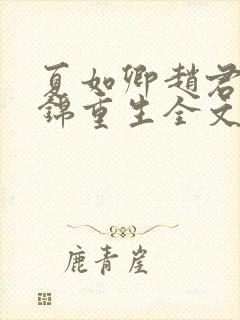 夏如卿趙君
錦重生全文
鹿青崖